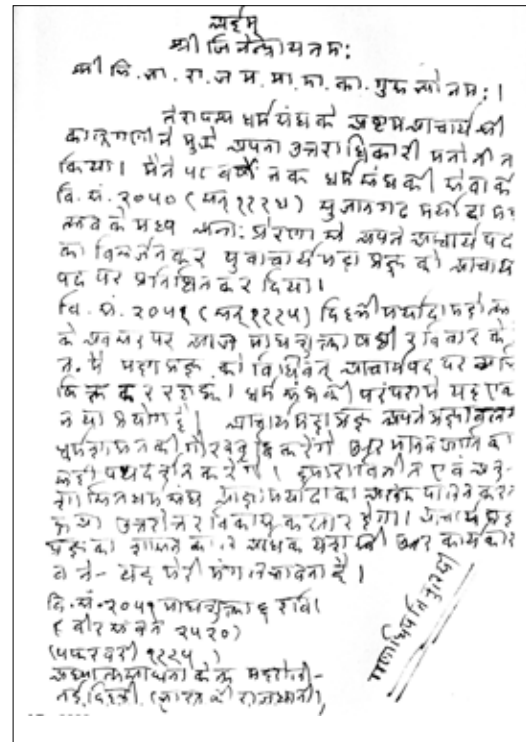 अर्हम्
श्री जिनेन्द्राय नमः
श्री भि. भा. रा. ज. म. मा. डा. का. गुरुभ्यो नमः।
तेरापन्थ धर्मसंघ के अष्टमाचार्य श्री
कालूगणी ने मुझे अपना उत्तराधिकारी मनोनीत
किया। मैंने ५८ वर्षों तक धर्मसंघ की सेवा की
वि. सं. २०५० (सन् १९९४) सुजानगढ़ मर्यादा महो
त्सव के मध्य अन्तः प्रेरणा से अपने आचार्य पद
का विसर्जन कर युवाचार्य महाप्रज्ञ को आचार्य
पद पर प्रतिष्ठित कर दिया।
वि. सं. २०५१ (सन् १९९५) दिल्ली मर्यादा महोत्सव
के अवसर पर आज माघ शुक्ला षष्ठी रविवार के
महाप्रज्ञ को विधिवत् आचार्य पद पर अभि
षिक्त कर रहा हूं। धर्मसंघ की परंपरा में यह एक
नया प्रयोग है। आचार्य महाप्रज्ञ अपने प्रज्ञाबल से
धर्मशासन की गौरववृद्धि करेंगे और मानवजाति का
सही पथदर्शन करेंगे। हमारा विनीत एवं अनु-
शासित धर्मसंघ आज्ञा मर्यादा का पालन करता
हुआ उत्तरोत्तर विकास करता रहेगा। आचार्य महा
प्रज्ञ का शासनकाल अधिक यशस्वी और कार्यकारी
बने- यह मेरी मंगलभावना है।
वि. सं. २०५१ माघ शुक्ला ६ रवि।
(वीर संवत् २५२०)
(५ फरवरी १९९५)
अध्यात्म साधना केन्द्र महरोली-
नई दिल्ली (भारत की राजधानी)
गणाधिपति तुलसी